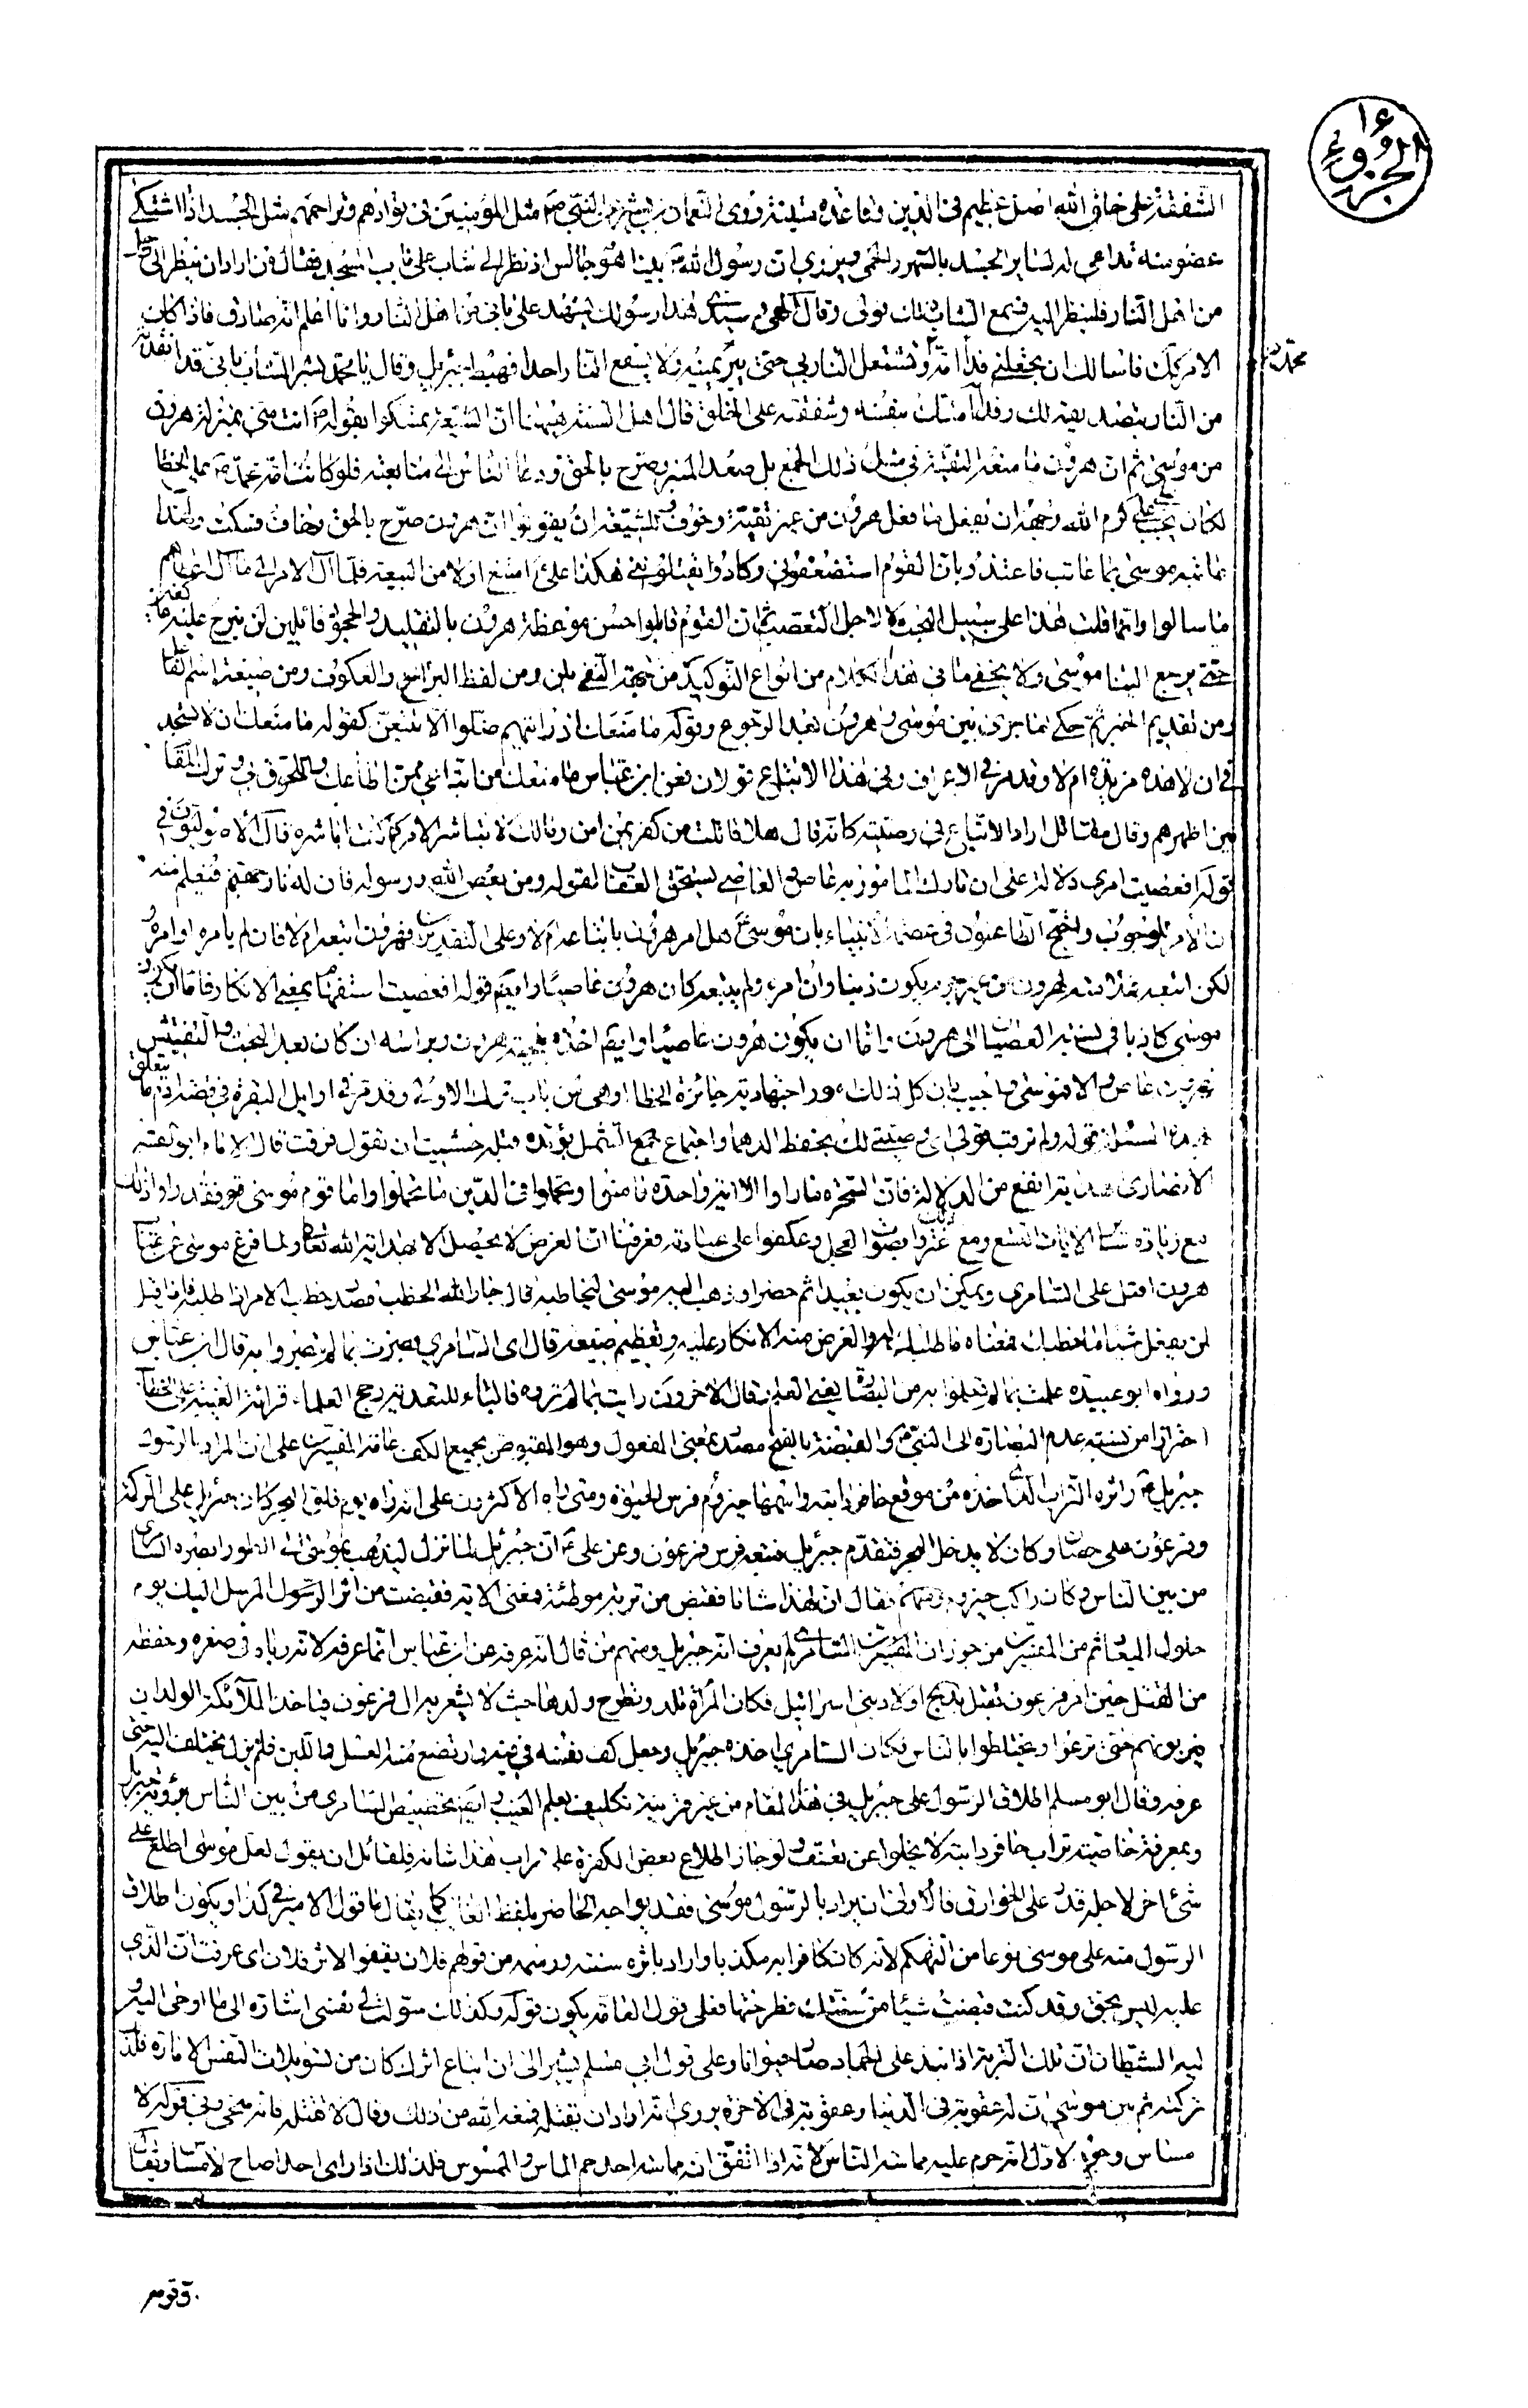 الجزؤ ١٦
الشفقة على خلق الله اصل عظيم فى الدين وقاعدة متينة روى النعمان بن بشير عن النبى ص مثل المؤمنين فى توادهم وتراحمهم مثل الجسد اذا اشتكى
عضو منه تداعى له سائر الجسد بالسهر والحمى ويروى ان رسول الله ص بينا هو جالس اذ نظر الى شاب على باب المسجد فقال من اراد ان ينظر الى رجل
من اهل النار فلينظر اليه فسمع الشاب ذلك فولى وقال الهى وسيدى هذا رسولك يشهد على بانى من اهل النار وانا اعلم انه صادق فاذا كان
الامر كذلك فاسالك ان تجعلنى فداء امة محمد وتشتعل النار بى حتى تبر يمينه ولا تشعل النار احدا فهبط جبرئيل وقال يا محمد بشر الشاب بانى قد انقذته
من النار بتصديقه لك وفدائه امتك بنفسه وشفقته على الخلق قال اهل السنة ههنا ان الشيعة تمسكوا بقوله ص انت منى بمنزلة هرون
من موسى ثم ان هرون ما منعه التقية فى مثل ذلك الجمع بل صعد المنبر وصرح بالحق ودعا الناس الى متابعته فلو كانت امة محمد ص على الخطا
لكان يجب على على كرم الله وجهه ان يفعل ما فعل هرون من غير تقية وخوف وللشيعة ان يقولوا ان هرون صرح بالحق وخاف فسكت ولهذا
عاتبه موسى بما عاتب فاعتذر بان القوم استضعفونى وكادوا يقتلوننى هكذا على امتنع اولا من البيعة فلما آل الامر الى ما آل اعطاهم
ما سالوا وانما قلت هذا على سبيل البحث لا لاجل التعصب ثم ان القوم قابلوا حسن موعظة هرون بالتقليد والجحود قائلين لن نبرح عليه عاكفين
حتى يرجع الينا موسى ولا يخفى ما فى هذا الكلام من انواع التوكيد من جهة النفى بلن ومن لفظ البراح والعكوف ومن صيغة اسم الفاعل
ومن تقديم الخبر ثم حكى ما جرى بين موسى وهرون بعد الرجوع وقوله ما منعك اذ رايتهم ضلوا الا تتبعن كقوله ما منعك ان لا تسجد
فى ان لا هذه مزيدة ام لا وقد مر فى الاعراف وفى هذا الاتباع قولان فعن ابن عباس ما منعك من اتباعى بمن اطاعك واللحوق بى وترك المقام
بين اظهرهم وقال مقاتل اراد الاتباع فى وصيته كانه قال هلا قاتلت من كفر بمن امن ومالك لا تباشر الامر كما كنت اباشره قال الاصوليون فى
قوله افعصيت امرى دلالة على ان تارك المامور به عاص والعاصى يستحق العقاب لقوله ومن يعص الله ورسوله فان له نار جهنم فيعلم منه
ان الامر للوجوب واحتج الطاعنون فى عصمة الانبياء بان موسى هل امر هرون باتباعه ام لا وعلى التقديرين فهرون اتبعه ام لا فان لم يامره او امره
لكن اتبعه فملامته لهرون من غير جرم يكون ذنبا وان امره ولم يتبعه كان هرون عاصيا وايضا قوله افعصيت استفهام بمعنى الانكار فاما ان يكون
موسى كاذبا فى نسبة العصيان الى هرون واما ان يكون هرون عاصيا وايضا اخذه بلحية هرون وبراسه ان كان بعد البحث والتفتيش
فهرون عاص والا فموسى واجيب بان كل ذلك امور اجتهادية جائزة الخطا او هى من باب ترك الاولى وقد مر فى اوايل البقرة فى قصة ادم ما يتعلق
بهذه المسئلة قوله ولم ترقب قولى اى وصيتى لك بحفظ الدهماء واجتماع جمع الشمل يؤيده قبله خشيت ان تقول فرقت قال الامام ابو القاسم
الانصارى الهداية انفع من الدلالة فان السحرة ما راوا الا اية واحدة فامنوا وتحملوا فى الدين ما تحملوا واما قوم موسى فقد راوا ذلك
مع زيادة سائر الايات التسع ومع ذلك اغتروا بصوت العجل وعكفوا على عبادته فعرفنا ان الغرض لا يحصل الا بهداية الله تعالى ولما فرغ موسى من عتاب
هرون اقبل على السامرى ويمكن ان يكون بعيدا ثم حضر او ذهب اليه موسى ليخاطبه قال جار الله الخطب مصدر خطب الامر اذا طلبه فاذا قيل
لمن يفعل شيئا ما خطبك فمعناه ما طلبك له والغرض منه الانكار عليه وتعظيم صنيعه قال اى السامرى بصرت بما لم يبصروا به قال ابن عباس
ورواه ابو عبيدة علمت بما لم تعلموا به من البصارة يعنى العلم وقال الاخرون رايت بما لم تروه فالباء للتعدية رجح العلماء قراءة الغيبة على الخطاب
احترازا من نسبة عدم البصارة الى النبى ص والقبضة بالفتح مصدر بمعنى المفعول وهو المقبوض بجميع الكف عامة المفسرين على ان المراد بالرسول
جبرئيل ص واثره التراب الذى اخذه من موقع حافر دابته واسمها حيزوم فرس الحيوة ومتى راه الاكثرون على انه راه يوم فلق البحر كان جبرئيل على الرمكة
وفرعون على حصان وكان لا يدخل البحر فتقدم جبرئيل فتبعه فرس فرعون وعن على ع ان جبرئيل لما نزل ليذهب بموسى الى الطور ابصره السامرى
من بين الناس وكان راكب حيزوم فقال ان لهذا شانا فقبض من تربة موطئة فمعنى الاية فقبضت من اثر الرسول المرسل اليك يوم
حلول الميعاد ثم من المفسرين من جوز ان السامرى لم يعرف انه جبرئيل ومنهم من قال انه عرفه عن ابن عباس انما عرفه لانه رباه فى صغره وحفظه
من القتل حين امر فرعون بذبح اولاد بنى اسرائيل فكان المرأة تلد وتطرح ولدها حيث لا يشعر به ال فرعون فياخذ الملائكة الولدان
فيربونهم حتى ترعرعوا ويختلطوا بالناس فكان السامرى اخذه جبرئيل وجعل كف نفسه فى فيه وارتضع منه العسل واللبن فلم يزل يختلف اليه حتى
عرفه وقال ابو مسلم اطلاق الرسول على جبرئيل فى هذا المقام من غير قرينة تكليف بعلم الغيب وايضا تخصيص السامرى من بين الناس برؤية جبرئيل
وبمعرفة خاصية تراب حافر دابته لا يخلوا عن تعسف ولو جاز اطلاع بعض الكفرة على تراب هذا شانه فلقائل ان يقول لعل موسى اطلع على
شئ اخر لاجله قدر على الخوارق فالاولى ان يراد بالرسول موسى فقد يواجه الحاضر بلفظ الغائب كما يقال ما قول الامير فى كذا ويكون اطلاق
الرسول منه على موسى نوعا من التهكم لانه كان كافرا به مكذبا واراد باثره سنته ورسمه من قولهم فلان يقفوا الاثر فلان اى عرفت ان الذى
عليه ليس بحق وقد كنت قبضت شيئا من سنتك فطرحتها فعلى قول العامة يكون قوله وكذلك سولت لى نفسى اشارة الى ما اوحى اليه
اليه الشيطان ان تلك التربة اذا نبذت على الجماد صار حيوانا وعلى قول ابى مسلم يشير الى ان اتباع اثرك كان من تسويلات النفس الامارة فلذلك
تركته ثم بين موسى ان له عقوبة فى الدنيا وعقوبة فى الاخرة يروى انه اراد ان يقتله فمنعه الله من ذلك وقال لا تقتله فانه سخى وفى قوله لا
مساس وجوه الاول انه حرم عليه مماسة الناس لانه اذا اتفق انه مماسه احد حم الماس والممسوس فلذلك اذا راى احدا صاح لا مساس ويقال
وقومه